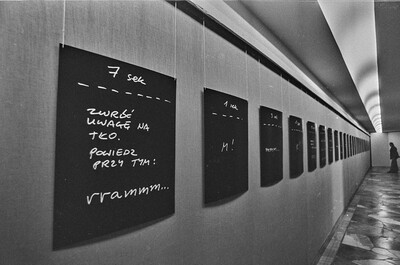 7 sek
ZWRÓĆ
UWAGĘ NA
TŁO.
POWIEDZ
PRZY TYM:
vrammm...
1 sek
M!